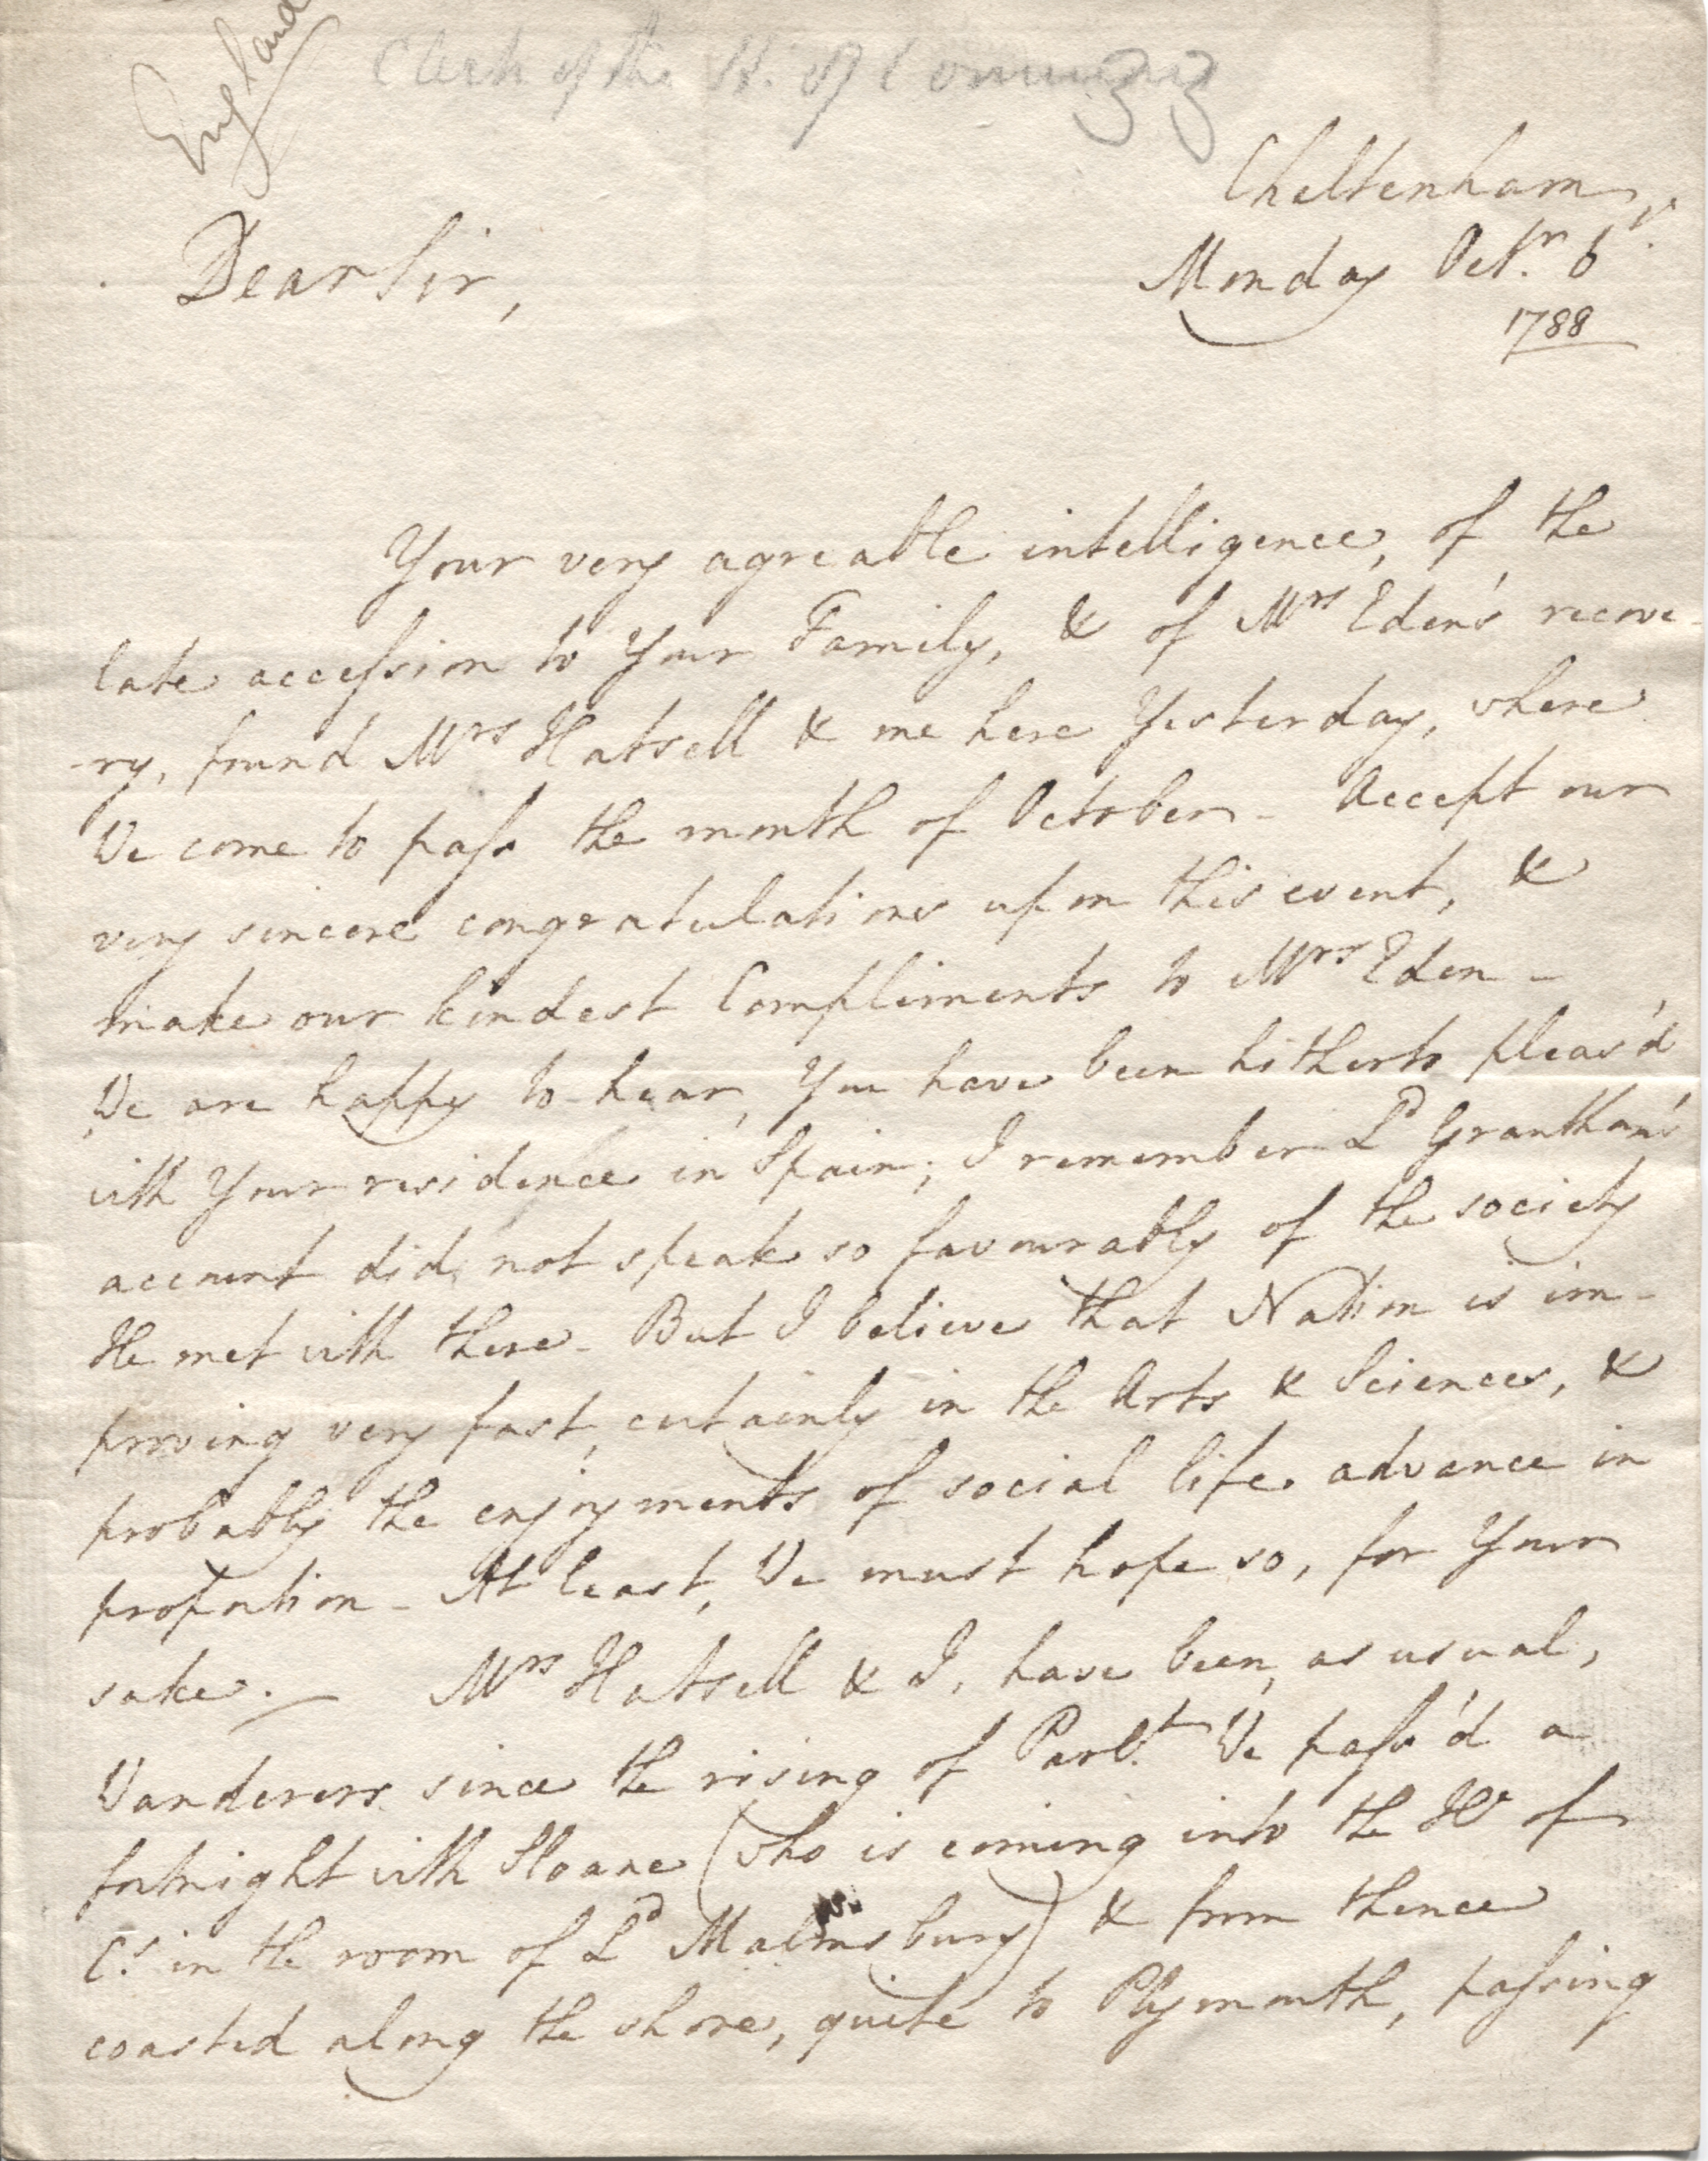 England
Clerk of the H. of Commons
Cheltenham,
Monday Octr. 6
1788
Dear Sir,
Your very agreable intelligence, of the
late accession to Your Family, & of Mrs Eden's recove-
-ry, found Mrs Hatsell & me here Yesterday, where
We come to pass the month of October - Accept our
very sincere congratulations upon this event, &
make our kindest Compliments to Mrs Eden -
We are happy to hear, You have been hitherto pleas'd
with Your residence in Spain; I remember Ld Grantham's
account did not speak so favourably of the society
He met with there - But I believe that Nation is im-
proving very fast, certainly in the Arts & Sciences, &
probably the enjoyments of social life advance in
proportion - At least, We must hope so, for Your
sake. — Mrs Hatsell & I, have been, as usual,
Wanderers since the rising of Parlt. We pass'd a
fortnight with Sloane (who is coming into the He of
Cs in the room of Ld Malmsbury) & from thence
coasted along the shore, quite to Plymouth, passing